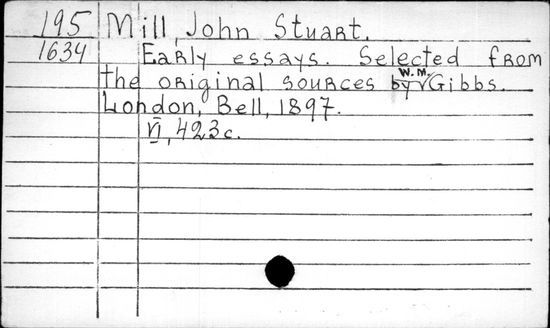 195 Mill, John Stuart.
1634 Early essays. Selected from
the original sources by W.M. Gibbs.
London, Bell, 1897.
VI, 423c.